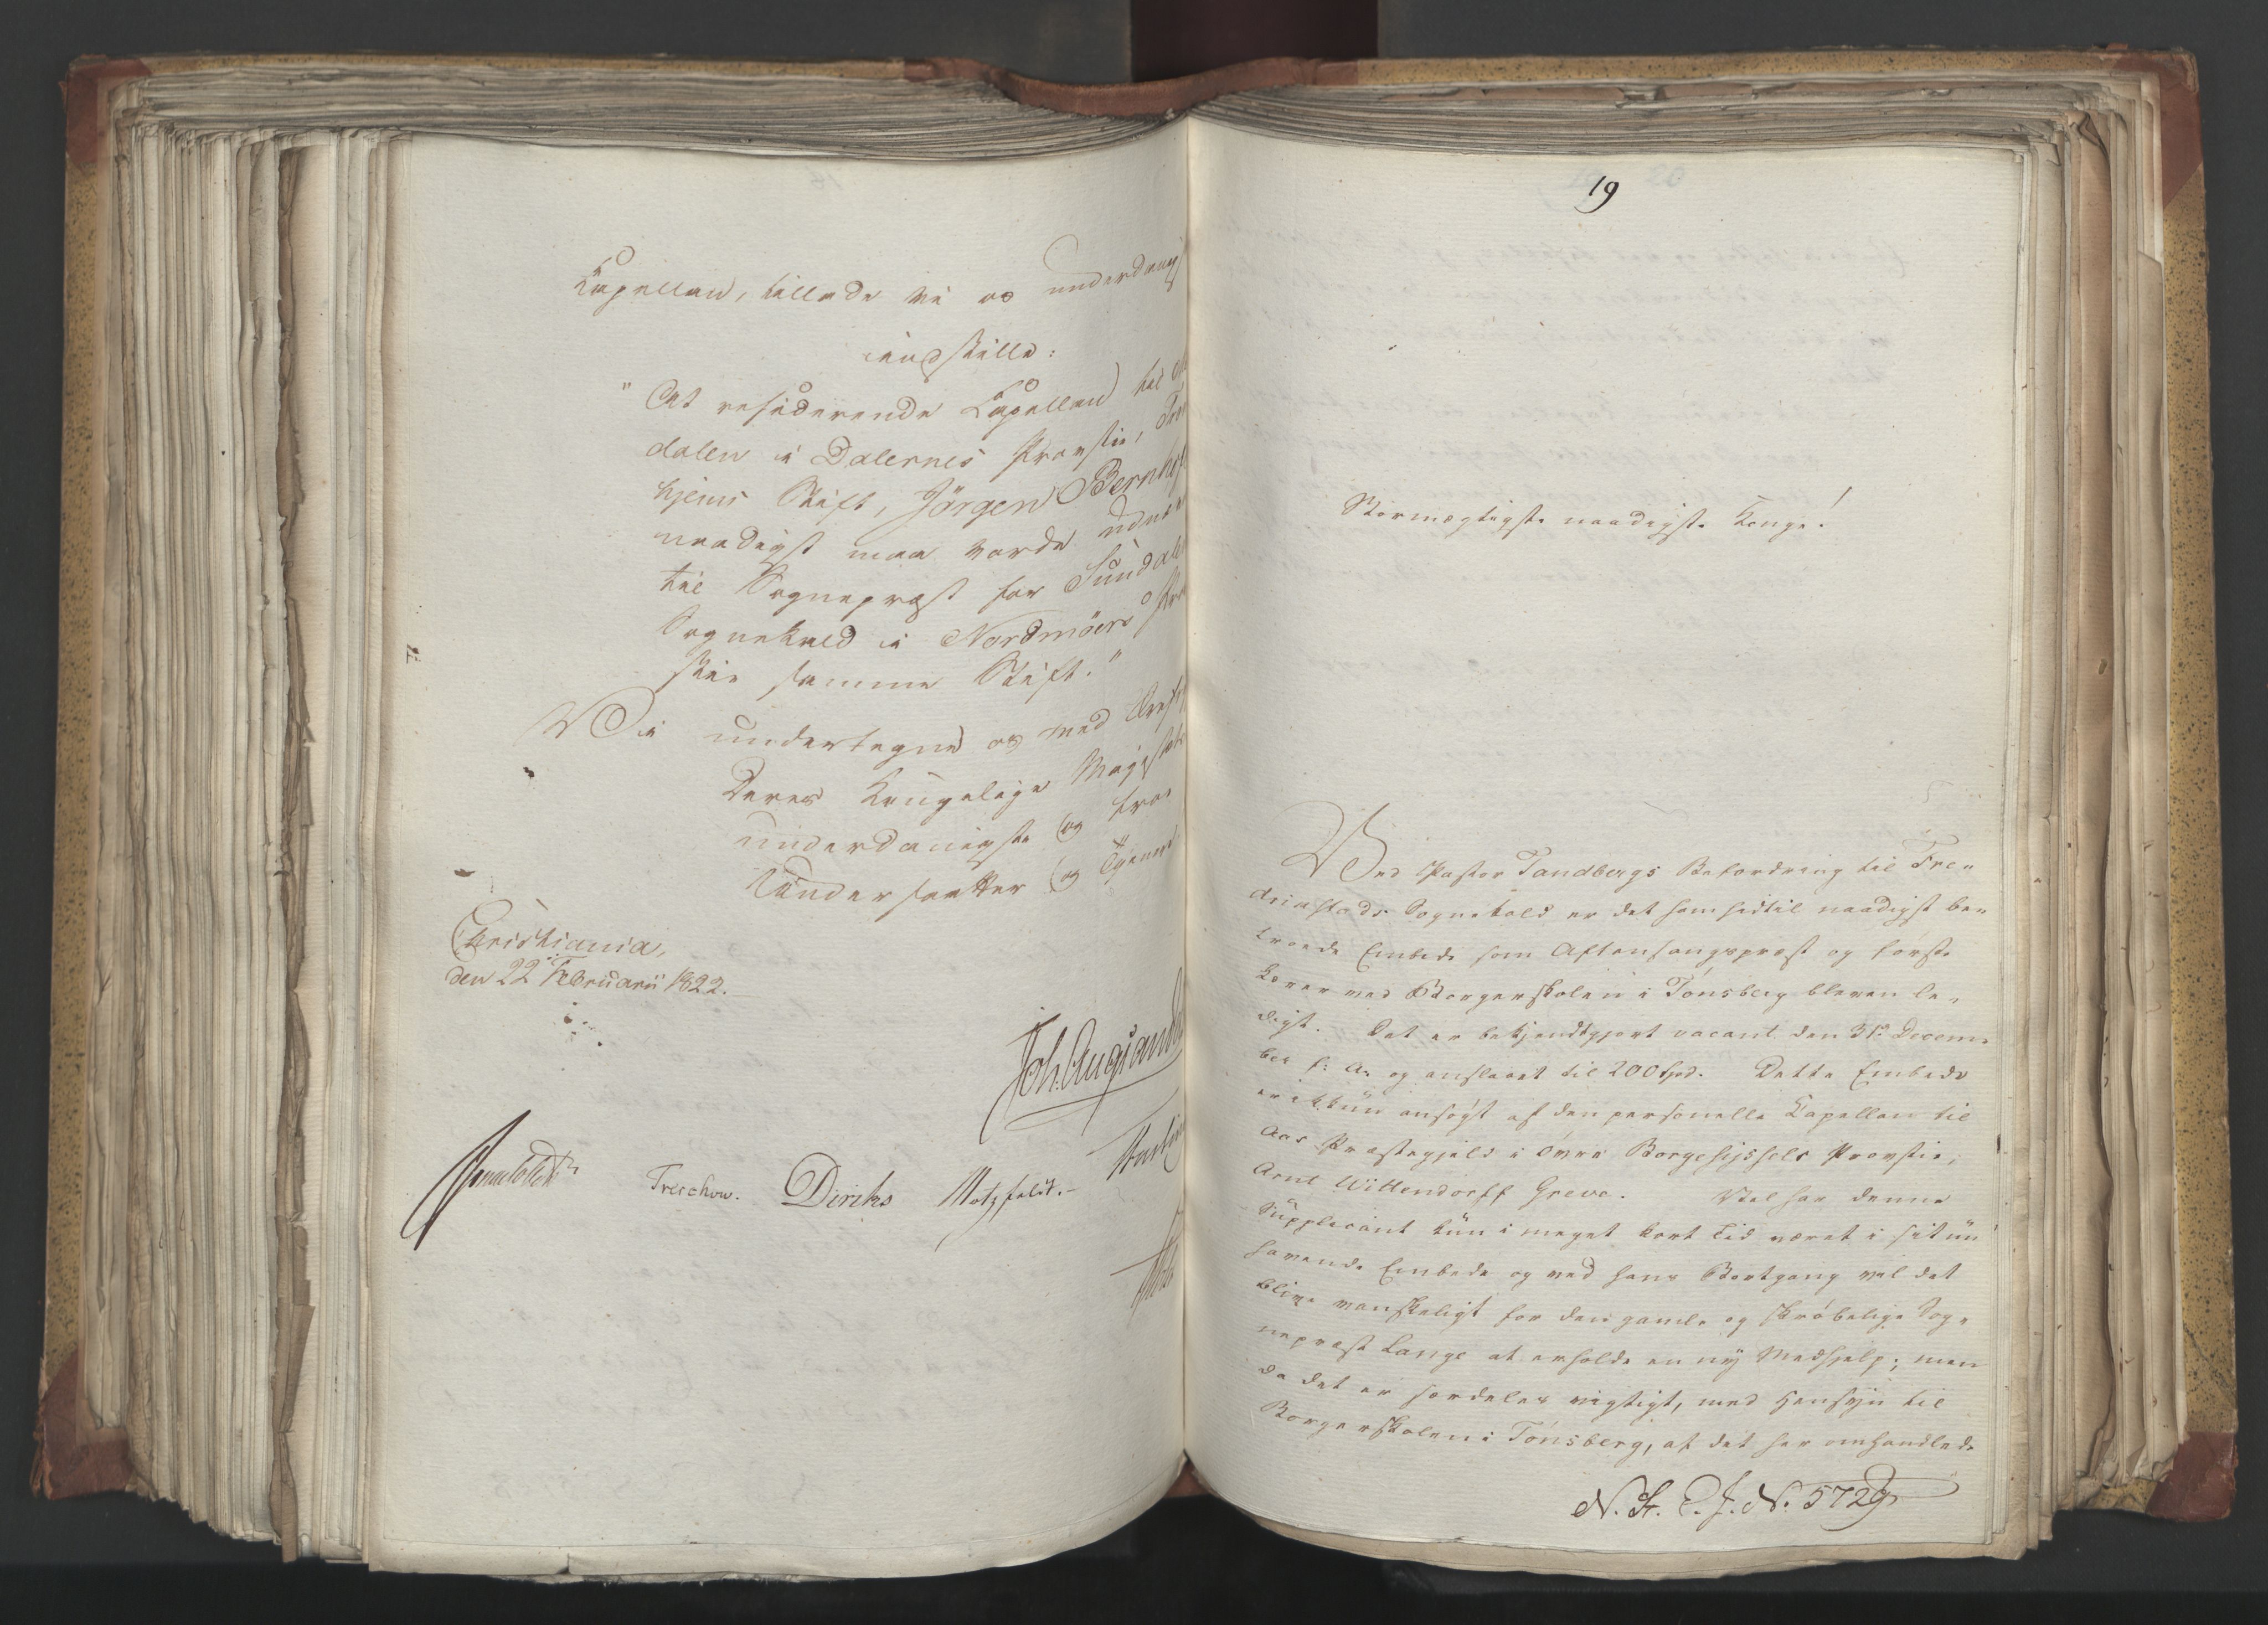 Capellan, tillade vi os underdanigst
indstille:
"At residerende Capellan til
dalen i Dalernes Provstie,
hjems Stift, Jörgen
naadigst maa vorde
til Sognepræst for Sundal
Sognekald i Nordmöers
stie samme Stift."
Vi undertegne os med
Deres Kongelige
underdanigste og troe
Undersaatter og
Christiania,
den 22de Februarii 1822.
Joh. Aug:
Treschow. Diriks Motzfeldt.
19
Stormægtigste naadigste Konge!
Ved Pastor Tandbergs Befordring til Fre-
driksstads Sognekald er det ham hidtil naadigst be-
troede Embede som Aftensangspræst og første
Lærer ved Borgerskolen i Tönsberg bleven le-
digt. Det er bekjendtgjort vacant den 31te Decem-
ber f: A: og anslaaet til 200 Spd. Dette Embede
er ikkun ansögt af den personelle Capellan til
Aas Præstegjeld i Övre Borgesyssels Provstie,
Arnt Wittendorff Greve. Vel har denne
Supplicant kun i meget kort Tid været i sit nu
havende Embede og ved hans Bortgang vil det
blive vanskeligt for den gamle og skröbelige Sog-
nepræst Lange at erholde en ny Medhjelp; men
da det er særdeles vigtigt, med Hensyn til
Borgerskolen i Tönsberg, at det her omhandlede
N. St. E. J. N. 5729